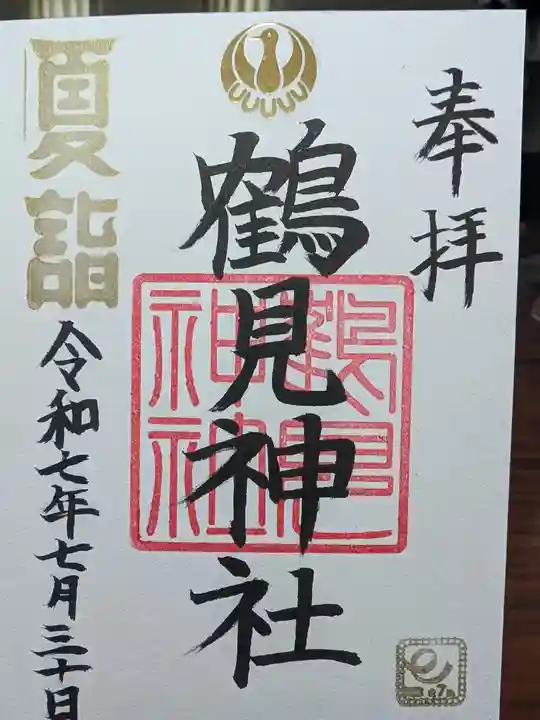 奉拝
鶴見神社
鶴見
神社
夏詣
令和七年七月三十日